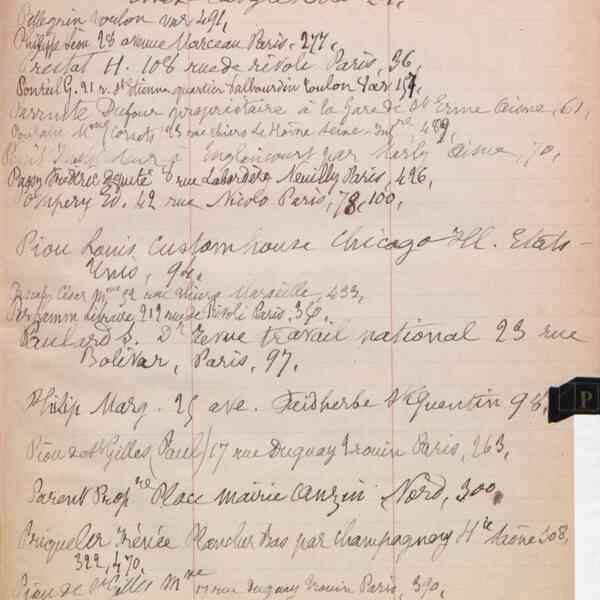 Pellegrin Toulon Var 491,
Philippe Léon 28 avenue Marceau Paris, 277,
Crestat H. 108 rue de rivoli Paris, 36,
G. 21 r. St Etienne quartier Valbourdin Toulon Var 157,
Dufour propriétaire à la Gare de St Erme Aisne, 61,
Mme (Corsets) 23 rue thiers Le Hâvre Seine-Inre, 489,
à Englancourt par Aisne, 70,
Frédéric Député 8 rue Labordère Neuilly Paris, 426,
Ompery Ed. 42 rue Nicolo Paris, 78, 100,
Piou Louis Custom house Chicago Ill. Etats-
Unis, 94,
César Mme 52 rue thiers Marseille, 433,
Per Lamm libraire, 212 rue de Rivoli Paris, 34,
S. Dr revue travail national 23 rue
Bolivar, Paris, 97.
Philip Marg. 25 ave. Feidherbe St Quentin 98,
Piou de St Gilles (Paul) 17 rue Duguay Trouin Paris, 263,
Parent Propre Place mairie Anzin Nord, 300,
Priqueler Frénée Plancher Bas par Champagney Hte Saône 308,
322, 470,
Piou de St Gilles Mme 17 rue Duguay Trouin Paris, 390,
P